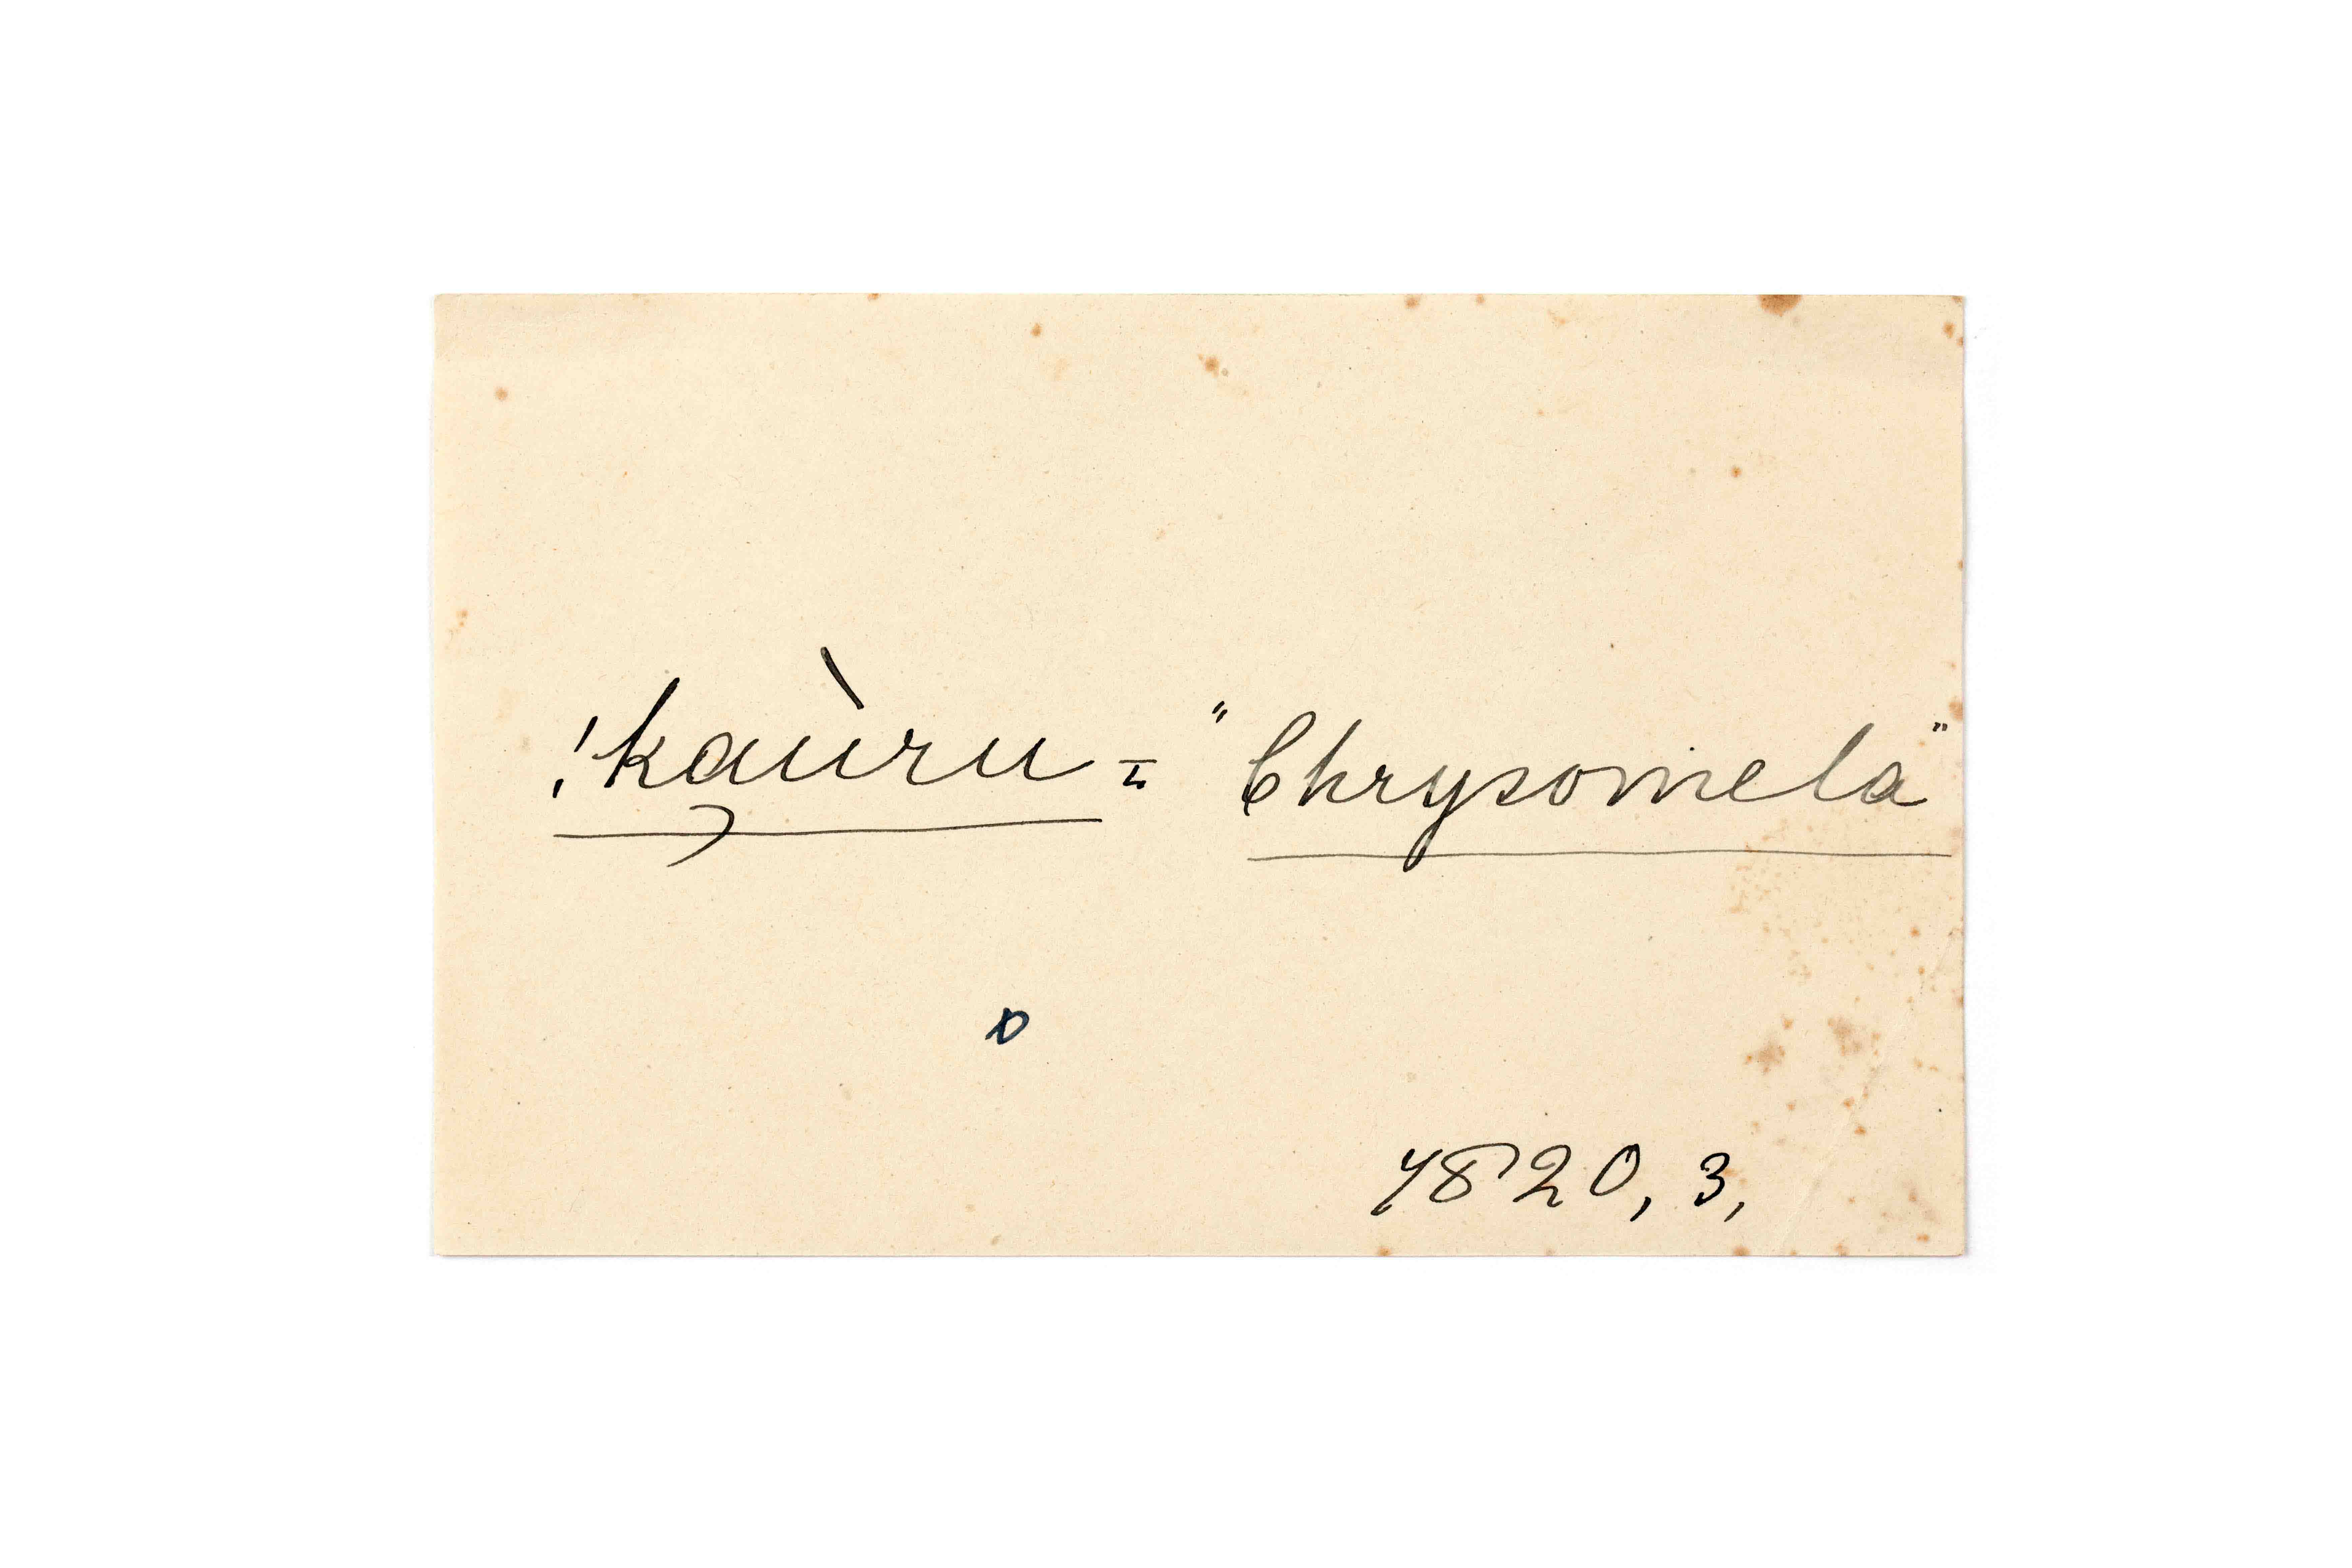 !ka̧ùru = "Chrysomela"
7820, 3,